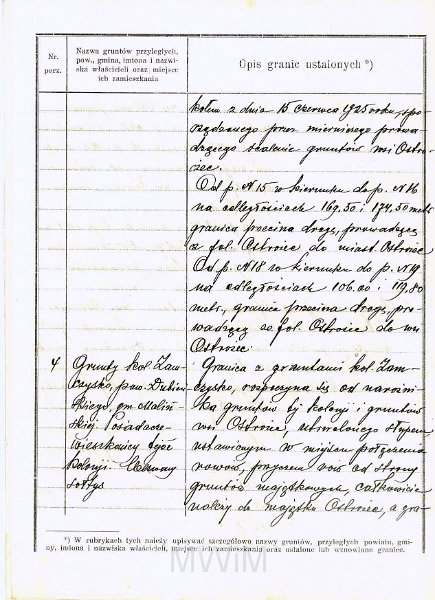 Nr. porz.
Nazwa gruntów przyległych, pow., gmina, imiona i nazwiska właścicieli oraz miejsce ich zamieszkania
Opis granic ustalonych *)
kołem z dnia 15 czerwca 1925 roku, spo-
rządzonego przez mierniczego prowa-
dzącego scalenie gruntów wsi Ostro-
żec.
Od p. N 15 w kierunku do p. N 16
na odległościach 169.50 i 174.50 metr.
granica przecina drogę, prowadzącą
z fol. Ostrożec do miast. Ostrożec
Od p. N 18 w kierunku do p. N 19
na odległościach 106.00 i 119.80
metr., granica przecina drogę, pro-
wadzącą ze fol. Ostrożec do wsi
Ostrożec.
4 Grunty kol. Zam-
czysko, pow. Dubień-
skiego, gm. Maliń-
skiej. Posiadacze
wieśniacy tejże
kolonji.
sołtys
Granica z gruntami kol. Zam-
czysko, rozpoczyna się od narożni-
ka gruntów tej kolonji i gruntów
wsi Ostrożec, utrwalonego słupem,
ustawionym w miejscu połączenia
rowów, przyczem rów od strony
gruntów majątkowych, całkowicie
należy do majątku Ostrożec, a gra-
*) W rubrykach tych należy opisywać szczegółowo nazwy gruntów, przyległych powiatu, gmi-
ny, imiona i nazwiska właścicieli, miejsce ich zamieszkania oraz ustalone lub wznowione granice.
MWiM